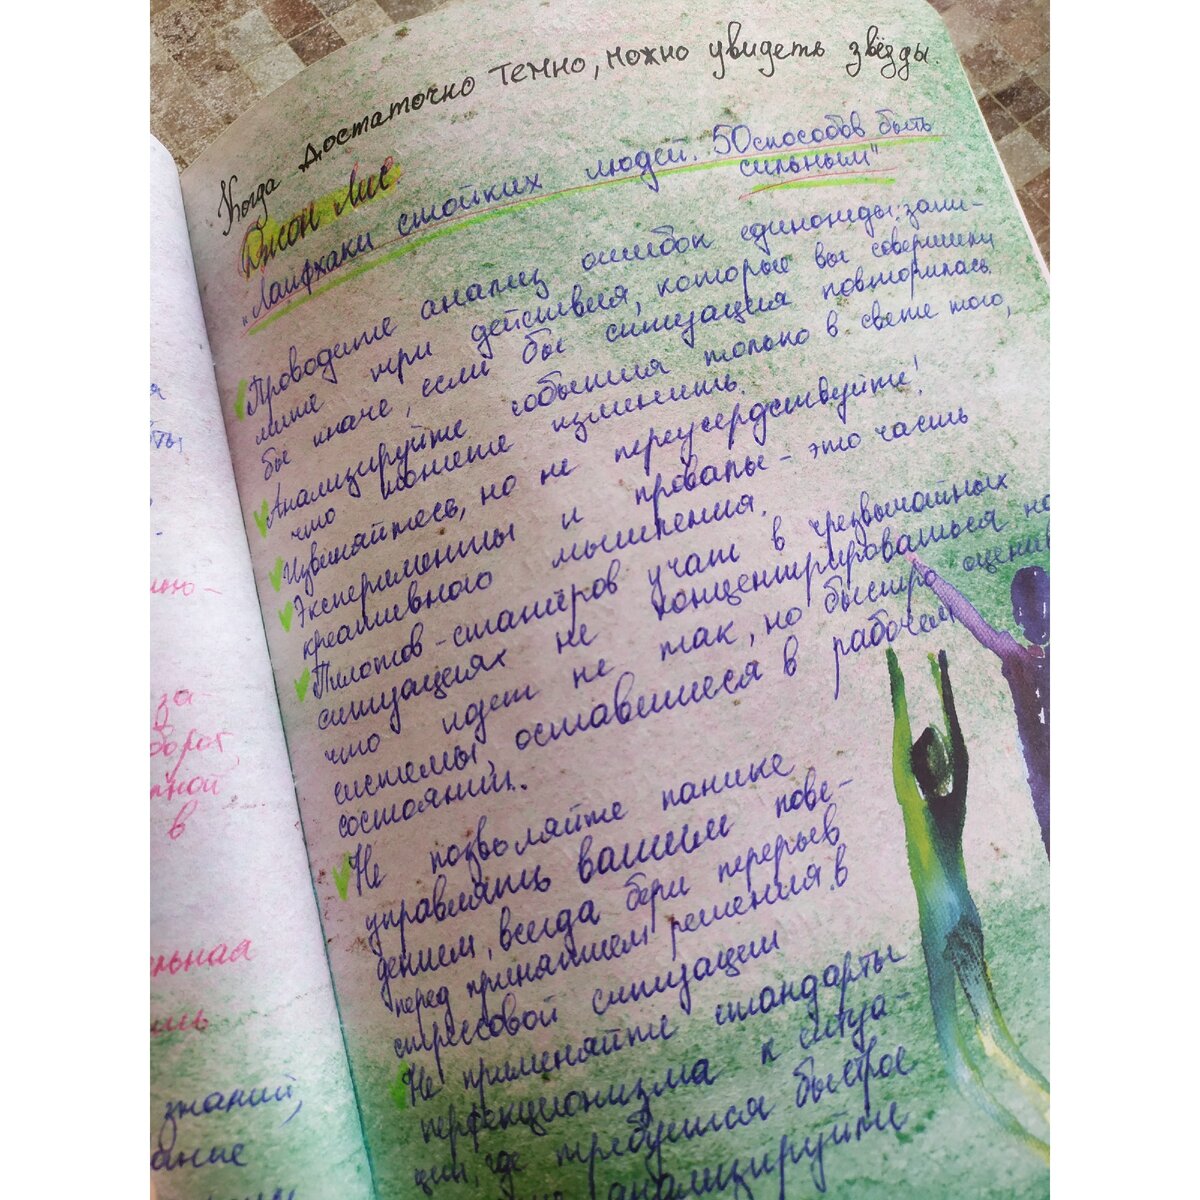 Когда достаточно темно, можно увидеть звёзды.
Джон Лис
„Лайфхаки стойких людей. 50 способов быть
сильным"
Проводите анализ ошибок единожды: запи-
шите три действия, которые вы совершили
бы иначе, если бы ситуация повторилась.
Анализируйте события только в свете того,
что можете изменить.
Извиняйтесь, но не переусердствуйте!
Эксперименты и провалы - это часть
креативного мышления.
Пилотов-стажёров учат в чрезвычайных
ситуациях не концентрироваться на
что идет не так, но быстро оценив
системы, оставшиеся в рабочем
состоянии.
Не позволяйте панике
управлять вашим пове-
дением, всегда бери перерыв
перед принятием решения в
стрессовой ситуации
Не применяйте стандарты
перфекционизма к ситуа-
ции, где требуется быстрое
анализируйте
за
в
знаний,